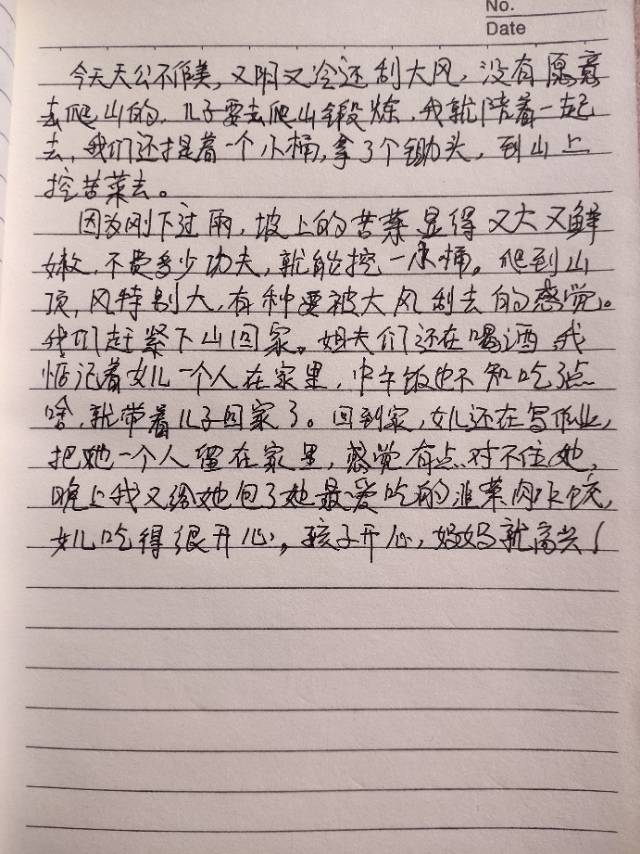 No.
Date
今天天公不作美，又阴又冷还刮大风，没有愿意
去爬山的，儿子要去爬山锻炼，我就陪着一起
去，我们还提着一个小桶，拿了个锄头，到山上
挖苦菜去。
因为刚下过雨，坡上的苦菜显得又大又鲜
嫩，不费多少功夫，就能挖一小桶。爬到山
顶，风特别大，有种要被大风刮去的感觉。
我们赶紧下山回家。姐夫们还在喝酒，我
惦记着女儿一个人在家里，中午饭也不知吃了点
啥，就带着儿子回家了。回到家，女儿还在写作业，
把她一个人留在家里，感觉有点对不住她，
晚上我又给她包了她最爱吃的韭菜肉水饺，
女儿吃得很开心，孩子开心，妈妈就高兴！